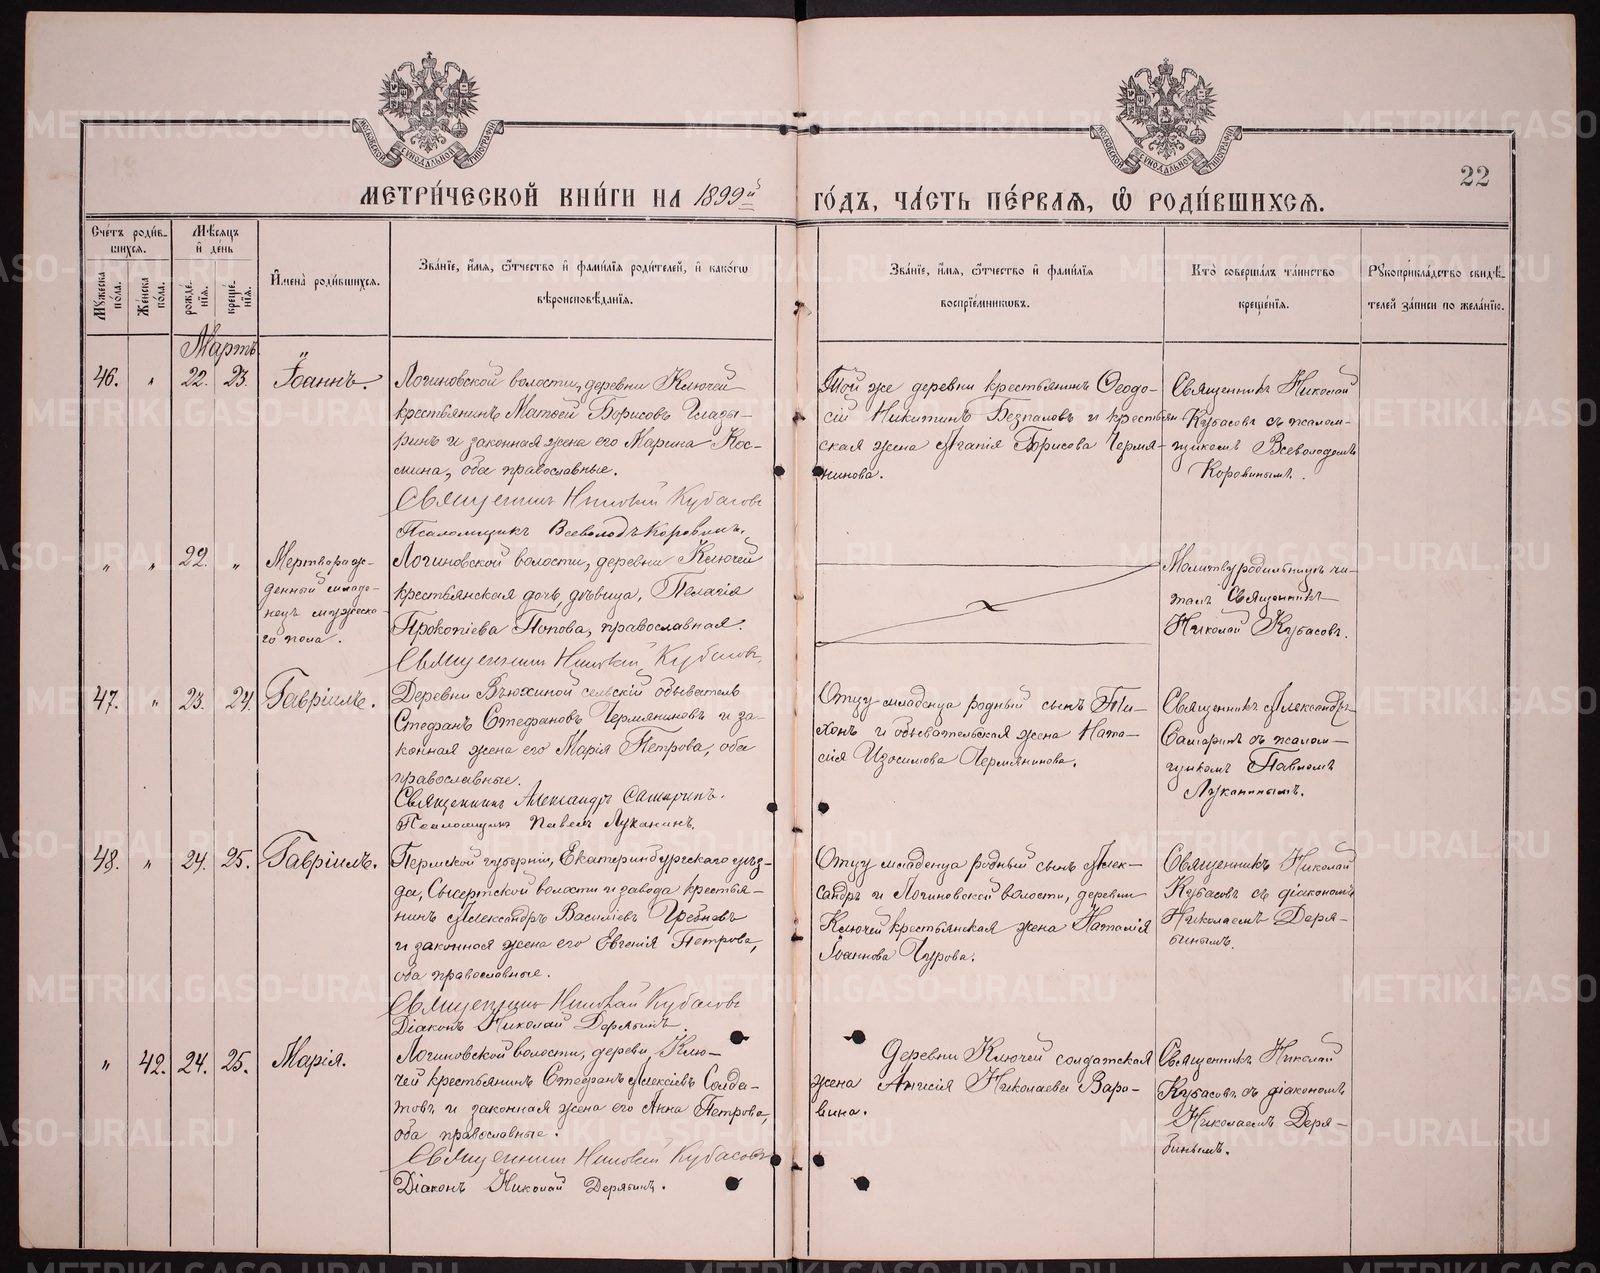 МОСКОВСКОЙ СИНОДАЛЬНОЙ ТИПОГРАФИИ
МОСКОВСКОЙ СИНОДАЛЬНОЙ ТИПОГРАФИИ
22
МЕТРИ́ЧЕСКОЙ КНИ́ГИ НА 1899й ГО́ДЪ, ЧА́СТЬ ПЕ́РВАѦ, Ѡ҆ РОДИ́ВШИХСѦ.
Сче́тъ роди́в-
шихсѧ.
Мѣ́сѧцъ
и҆ де́нь
Мꙋ́жеска
по́ла.
Же́нска
по́ла.
рожде́-
нїѧ.
креще́-
нїѧ.
И҆мена̀ роди́вшихсѧ.
Зва́нїе, и҆́мѧ, ѻ҆́тчество и҆ фами́лїѧ роди́телей, и҆ како́гѡ
вѣроисповѣ́данїѧ.
Зва́нїе, и҆́мѧ, ѻ҆́тчество и҆ фами́лїѧ
воспрїе́мниковъ.
Кто̀ соверша́лъ та́инство
креще́нїѧ.
Рꙋкоприкла́дство свидѣ́-
телей за́писи по жела́нїю.
Мартъ
46. " 22. 23. Іоаннъ.
Логиновской волости, деревни Ключей
крестьянинъ Матѳей Борисовъ Глазы-
ринъ и законная жена его Марина Кос-
мина, оба православные.
Священникъ Николай Кубасовъ
Псаломщикъ Всеволодъ Коровинъ.
Той же деревни крестьянинъ Ѳеодо-
сій Никитинъ Безпаловъ и крестьян-
ская жена Агапія Борисова Чермя-
нинова.
Священникъ Николай
Кубасовъ съ псалом-
щикомъ Всеволодомъ
Коровинымъ.
" " 22. "
Мертворож-
денный младе-
нецъ мужеска-
го пола.
Логиновской волости, деревни Ключей
крестьянская дочь дѣвица, Пелагія
Прокопіева Попова, православная.
Священникъ Николай Кубасовъ
Молитву родильницѣ чи-
талъ Священникъ
Николай Кубасовъ.
47. " 23. 24. Гавріилъ.
Деревни Вьюхиной сельскій обыватель
Стефанъ Стефановъ Чермяниновъ и за-
конная жена его Марія Петрова, оба
православные.
Священникъ Александръ Самаринъ.
Псаломщикъ Павелъ Луканинъ.
Отцу младенца родный сынъ Ти-
хонъ и обывательская жена Ната-
лія Изосимова Чермянинова.
Священникъ Александръ
Самаринъ съ псалом-
щикомъ Павломъ
Луканинымъ.
48. " 24. 25. Гавріилъ.
Пермской губерніи, Екатеринбургскаго уѣз-
да, Сысертской волости и завода крестья-
нинъ Александръ Василіевъ Гребневъ
и законная жена его Евгенія Петрова,
оба православные.
Священникъ Николай Кубасовъ
Діаконъ Николай Дерябинъ.
Отцу младенца родный сынъ Алек-
сандръ и Логиновской волости, деревни
Ключей крестьянская жена Наталія
Іоаннова Чурова.
Священникъ Николай
Кубасовъ съ діакономъ
Николаемъ Деря-
бинымъ.
" 42. 24. 25. Марія.
Логиновской волости, деревни Клю-
чей крестьянинъ Стефанъ Алексіевъ Солда-
товъ и законная жена его Анна Петрова,
оба православные.
Священникъ Николай Кубасовъ
Діаконъ Николай Дерябинъ.
Деревни Ключей солдатская
жена Анисія Николаева Варо-
вина.
Священникъ Николай
Кубасовъ съ діакономъ
Николаемъ Деря-
бинымъ.
METRIKI.GASO-URAL.RU